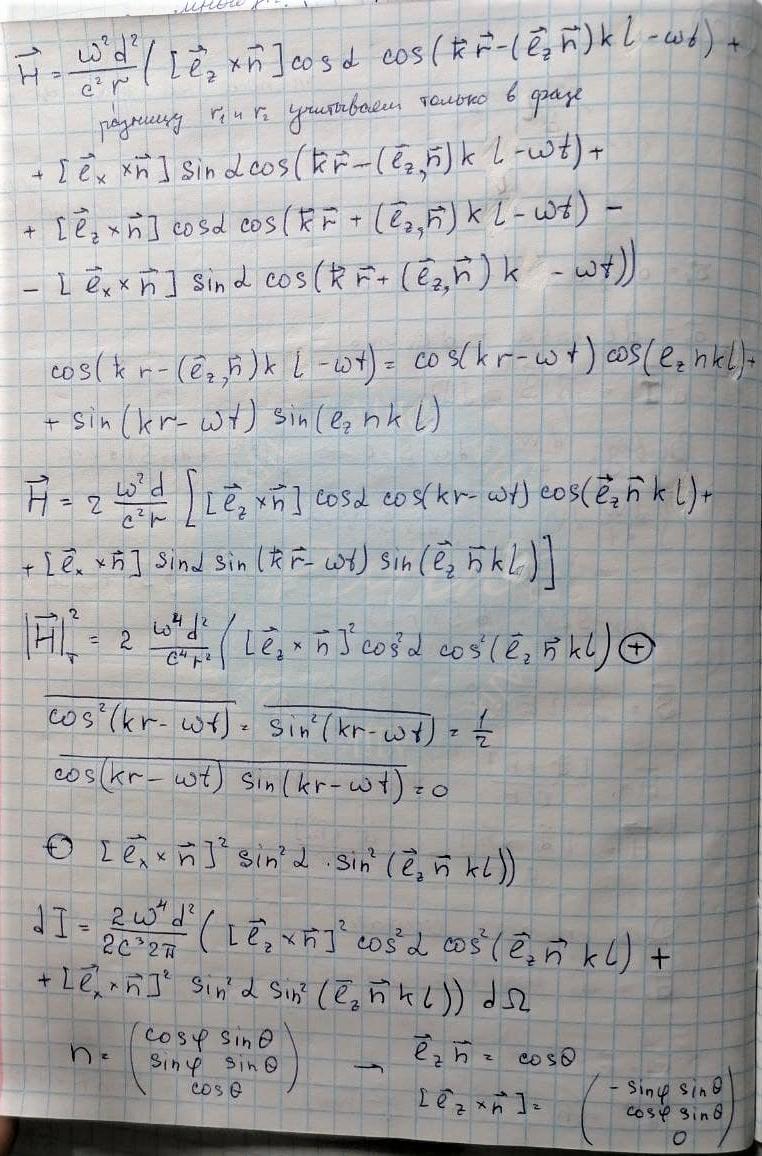 H⃗ = ω²d²/c²r ( [e⃗_z × n⃗] cos α cos(k⃗r⃗ − (e⃗_z n⃗) k l − ωt) +
разницу r₁ и r₂ учитываем только в фазе
+ [e⃗_x × n⃗] sin α cos(k⃗r⃗ − (e⃗_z, n⃗) k l − ωt) +
+ [e⃗_z × n⃗] cos α cos(k⃗r⃗ + (e⃗_z, n⃗) k l − ωt) −
− [e⃗_x × n⃗] sin α cos(k⃗r⃗ + (e⃗_z, n⃗) k − ωt))
cos(k r − (e⃗_z, n⃗) k l − ωt) = cos(kr − ωt) cos(e_z n k l) +
+ sin(kr − ωt) sin(e_z n k l)
H⃗ = 2 ω²d/c²r [ [e⃗_z × n⃗] cos α cos(kr − ωt) cos(e⃗_z n⃗ k l) +
+ [e⃗_x × n⃗] sin α sin(k⃗r⃗ − ωt) sin(e⃗_z n⃗ k l) ]
|H⃗|²_T = 2 ω⁴d²/c⁴r² ( [e⃗_z × n⃗]² cos²α cos²(e⃗_z n⃗ k l) ⊕
cos²(kr − ωt) = sin²(kr − ωt) = 1/2
cos(kr − ωt) sin(kr − ωt) = 0
⊕ [e⃗_x × n⃗]² sin²α · sin²(e⃗_z n⃗ k l))
dI = 2ω⁴d²/2c³2π ( [e⃗_z × n⃗]² cos²α cos²(e⃗_z n⃗ k l) +
+ [e⃗_x × n⃗]² sin²α sin²(e⃗_z n⃗ k l)) dΩ
n = (cosφ sinθ
sinφ sinθ
cosθ) → e⃗_z n⃗ = cosθ
[e⃗_z × n⃗] = (− sinφ sinθ
cosφ sinθ
0)